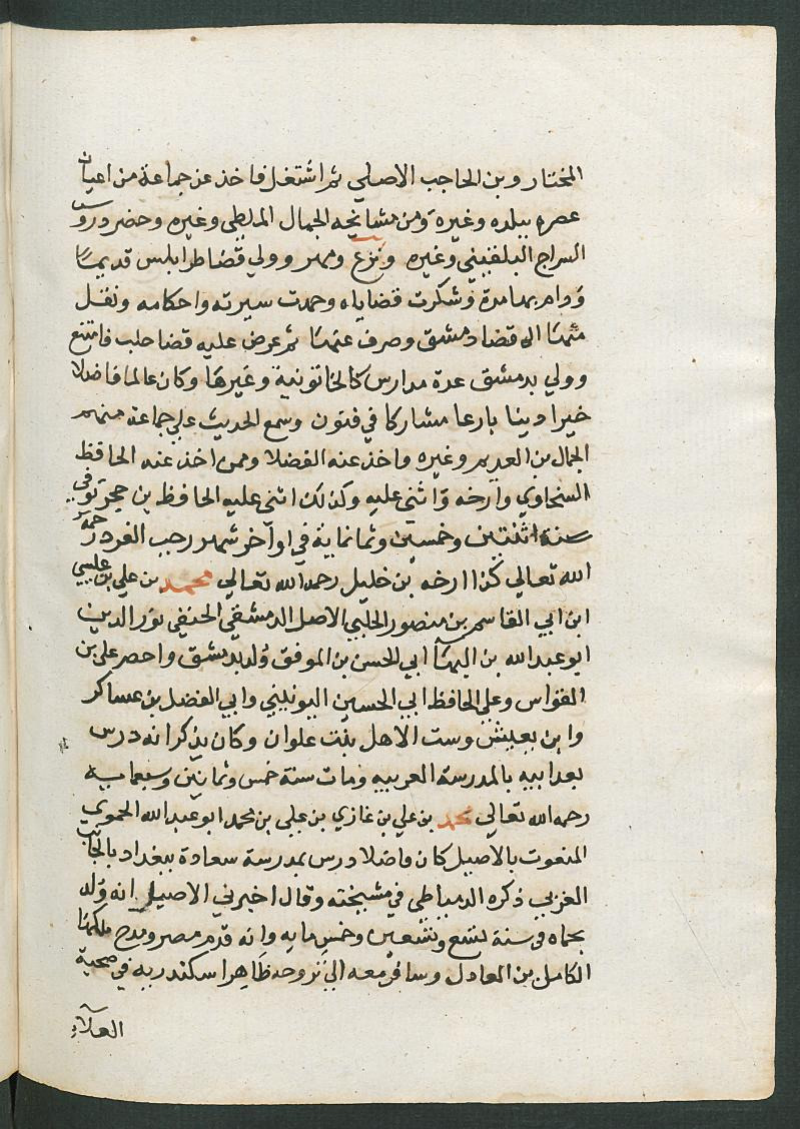 المختار وبن الحاجب الاصلي ثم اشتغل فاخذ عن جماعة من اعيان
عصره ببلده وغيره ومن مشايخه الجمال الملطي وغيره وحضر دروس
السراج البلقيني وغيره وبرع ومهر وولي قضا طرابلس قديما
ودام بها مدة وشكرت قضاياه وحمدت سيرته واحكامه ونقل
منها الى قضا دمشق وصرف عنها ثم عرض عليه قضا حلب فامتنع
وولي بدمشق عدة مدارس كالخاتونية وغيرها وكان عالما فاضلا
خيرا دينا بارعا مشاركا في فنون وسمع الحديث علي جماعة منهم
الجمال بن العديم وغيره واخذ عنه الفضلا وممن اخذ عنه الحافظ
السخاوي وارخه واثني عليه وكذلك اثني عليه الحافظ بن حجر توفي
سنة اثنتين وخمسين وثمانماية في اواخر شهر رجب الفرد رحمه
الله تعالي كذا ارخه بن خليل رحمه الله تعالي محمد بن علي بن عيسي
ابن ابي القاسم بن منصور الحلبي الاصل الدمشقي الحنفي نور الدين
ابو عبد الله بن البها ابي الحسن بن الموفق ولد بدمشق واحضر علي بن
القواس وعلي الحافظ ابي الحسين اليونيني وابي الفضل بن عساكر
وابن يعيش وست الاهل بنت علوان وكان يذكر انه درس
بعد ابيه بالمدرسة العزيه ومات سنة خمس وثمانين وسبعمايه
رحمه الله تعالي محمد بن علي بن غازي بن علي بن محمد ابو عبد الله الحموي
المنعوت بالاصيل كان فاضلا درس بمدرسة سعادة ببغداد بالجانب
الغربي ذكره الدمياطي في مشيخته وقال اخبرني الاصيل انه ولد
بحماه في سنة تسع وتسعين وخمس مايه وانه قدم مصر ومدح ملكها
الكامل بن العادل وسافر معه الي تروجه ظاهر اسكندريه في صحبة
العلاء